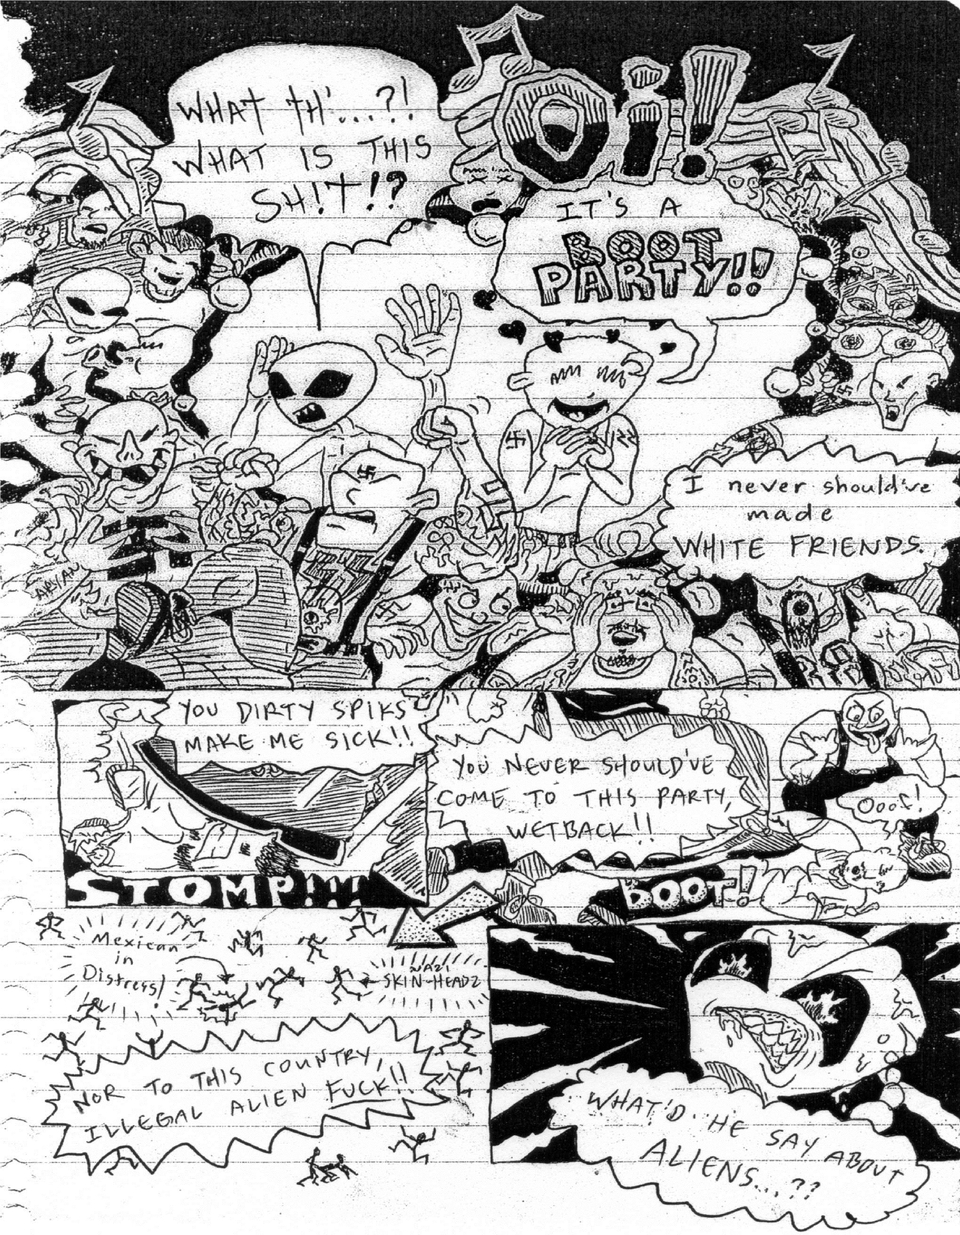 WHAT TH'...?!
WHAT IS THIS
SH!T!?
Oi!
IT'S A
BOOT
PARTY!!
I never should've
made
WHITE FRIENDS.
ARYAN
YOU DIRTY SPIKS
MAKE ME SICK!!
STOMP!!!
YOU NEVER SHOULD'VE
COME TO THIS PARTY,
WETBACK!!
Ooof!
BOOT!
Mexican
in
Distress!
NAZI
SKIN-HEADZ
NOR TO THIS COUNTRY,
ILLEGAL ALIEN FUCK!!
WHAT'D HE SAY ABOUT
ALIENS...??